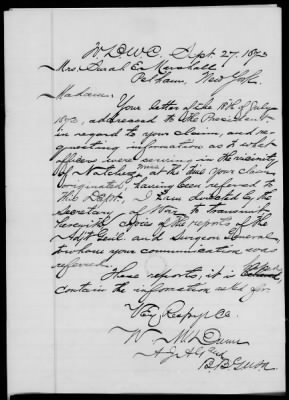 W.D.W.C. Sept 27. 187
Mrs. Sarah E. Marshall
Pelham, New York.
Madam,
Your letter of the 18th of July
1873, addressed to the President
in regard to your claim, and re-
questing information as to what
officers were serving in the vicinity
of Natchez Miss. at the time your claim
originated, having been referred to
this Dept., I am directed by the
Secretary of War to transmit
herewith copies of the reports of the
Adjt Genl. and Surgeon General
to whom your communication was
referred.
These reports, it is
contain the information asked for.
Very Respy &c.
W. M. Dunn
A. J. A. Genl